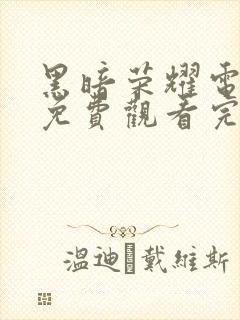 黑暗荣耀電
免費觀看完
溫迪 戴維斯